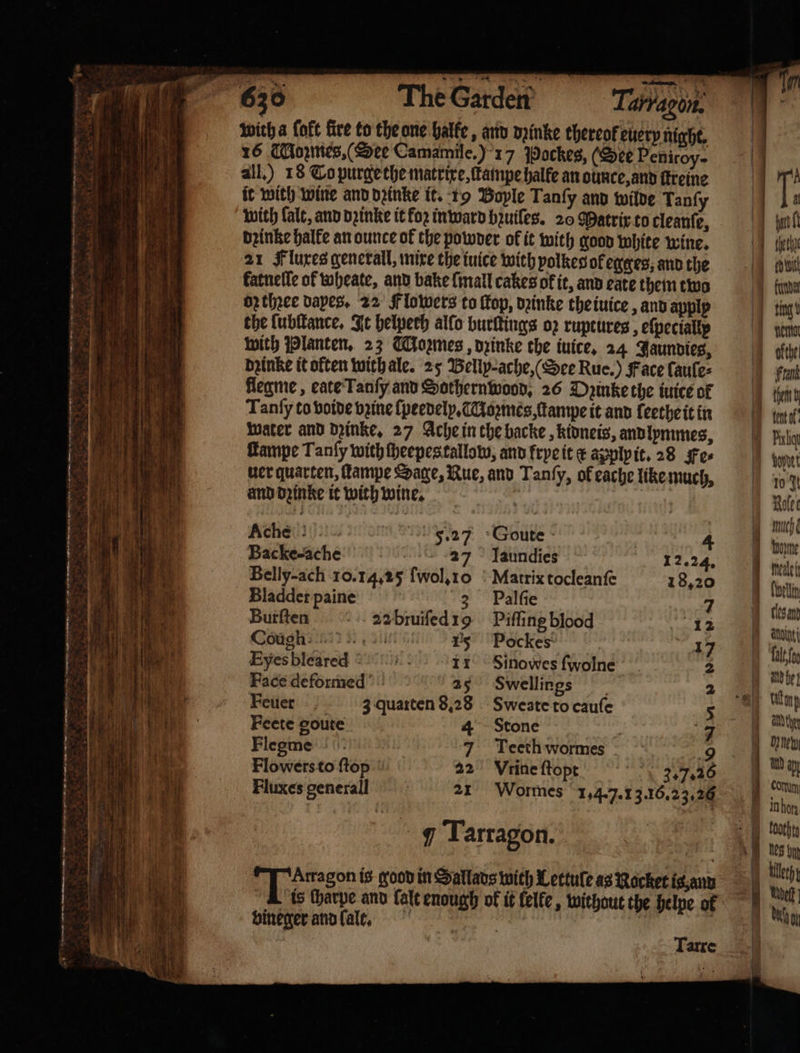 630 The Garden Tarragon.
with a soft fire to the one halfe, and drinke thereof euery night.
16 Wormes, (See Camamile.) 17 Pockes, (See Peniroy-
all.) 18 To purge the matrixe, stampe halfe an ounce, and streine
it with wine and drinke it. 19 Boyle Tansy and wilde Tansy
with salt, and drinke it for inward bruises. 20 Matrix to cleanse,
drinke halfe an ounce of the powder of it with good white wine.
21 Fluxes generall, mixe the iuice with yolkes of egges, and the
fatnesse of wheate, and bake small cakes of it, and eate them two
or three dayes. 22 Flowers to stop, drinke the iuice, and apply
the substance. It helpeth also burstings or ruptures, especially
with Planten. 23 Wormes, drinke the iuice. 24 Jaundies,
drinke it often with ale. 25 Belly-ache, (See Rue.) Face sause-
flegme, eate Tansy and Sothernwood. 26 Drinke the iuice of
Tansy to voide vrine speedely. Wormes, stampe it and seethe it in
water and drinke. 27 Ache in the backe, kidneis, and lymmes,
stampe Tansy with sheepes tallow, and frye it & apply it. 28 Fe-
uer quarten, stampe Sage, Rue, and Tansy, of eache like much,
and drinke it with wine.
Ache 5.27 Goute 4
Backe-ache 27 Iaundies 12.24,
Belly-ach 10.14,25 swol,10 Matrix to cleanse 18,20
Bladder paine 3 Palsie 7
Bursten 22 bruised 19 Pissing blood 12
Cough 15 Pockes 17
Eyes bleared 11 Sinowes swolne 2
Face deformed 25 Swellings 2
Feuer 3 quarten 8,28 Sweate to cause 5
Feete goute 4 Stone 7
Flegme 7 Teeth wormes 9
Flowers to stop 22 Vrine stopt 3.7.26
Fluxes generall 21 Wormes 1,4.7.13.16,23,26
¶ Tarragon.
TArragon is good in Sallads with Lettuse as Rocket is, and
is sharpe and salt enough of it selfe, without the helpe of
vineger and salt.
Tarre